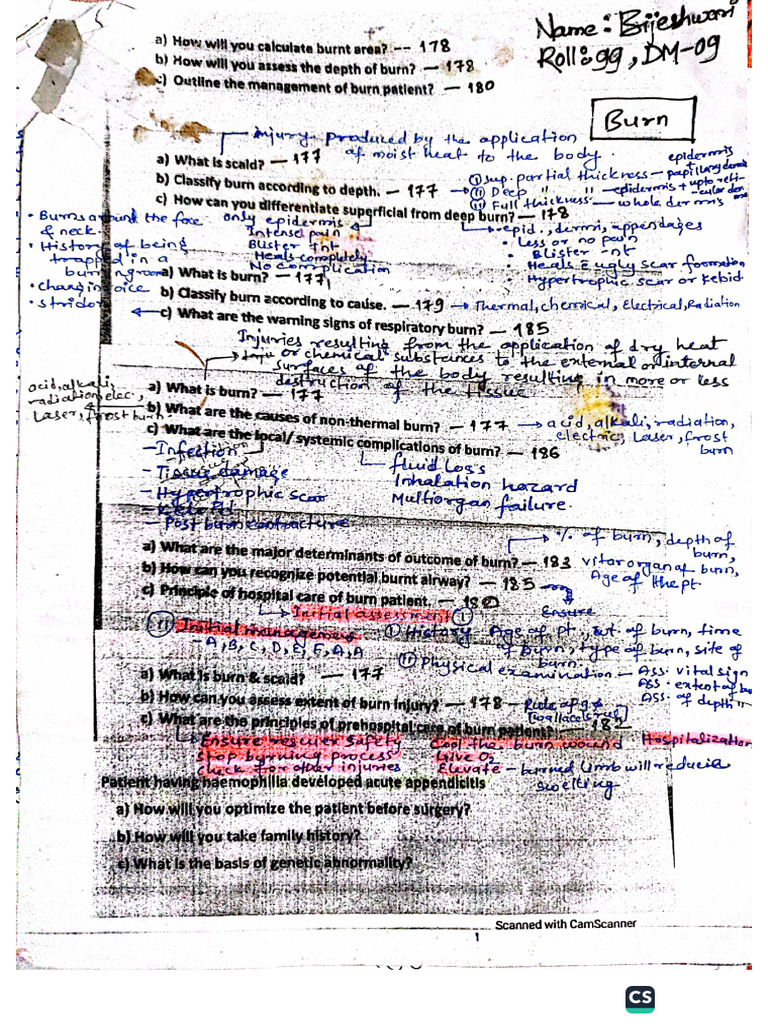 Name: Brijeshwari
Roll: 99, DM-09
a) How will you calculate burnt area? -- 178
b) How will you assess the depth of burn? — 178
c) Outline the management of burn patient? — 180
Burn
injury produced by the application
of moist heat to the body.
a) What is scald? — 177
b) Classify burn according to depth. — 177
(i) Sup. partial thickness — epidermis + papillary dermis
(ii) Deep " " — epidermis + upto reticular der
(iii) Full thickness — whole dermis
c) How can you differentiate superficial from deep burn? — 178
only epidermis
Intense pain
Blister +nt
Heals completely
No complication
epid., dermi, appendages
• Less or no pain
• Blister -nt
• Heals E ugly scar formation
Hypertrophic scar or Kebid
• Burns around the face
& neck.
• History of being
trapped in a
burning room
• change in voice
• stridor
a) What is burn? — 177
b) Classify burn according to cause. — 179 → Thermal, chemical, Electrical, Radiation
c) What are the warning signs of respiratory burn? — 185
Injuries resulting from the application of dry heat
or chemical substances to the external or internal
surfaces of the body resulting in more or less
destruction of the tissue
a) What is burn? — 177
b) What are the causes of non-thermal burn? — 177 → acid, alkali, radiation,
electric, Laser, frost
burn
acid, alkali,
radiation, elec.,
Laser, frost burn
c) What are the local/ systemic complications of burn? — 186
— Infection
— Tissue damage
— Hypertrophic scar
— Post burn contracture
fluid loss
Inhalation hazard
Multiorgan failure
a) What are the major determinants of outcome of burn? — 183
% of burn, depth of
burn,
vitar organ of burn,
Age of the pt
b) How can you recognize potential burnt airway? — 185
c) Principle of hospital care of burn patient. — 180
Ensure
Initial assessment (i)
(ii) Initial management
A, B, C, D, E, F, A, A
(i) History — Age of pt, wt. of burn, time
of burn, type of burn, site of
burn.
(ii) Physical examination — Ass. vital sign
Ass. extent of bur
Ass. of depth "
a) What is burn & scald? — 177
b) How can you assess extent of burn injury? — 178 — Rule of 9
c) What are the principles of prehospital care of burn patient? — 182
Ensure rescuer safety
stop burning process
check for other injuries
Cool the burn wound
Give O2
Elevate — burned limb will reduces
swelling
Hospitalization
Patient having haemophilia developed acute appendicitis
a) How will you optimize the patient before surgery?
b) How will you take family history?
c) What is the basis of genetic abnormality?
Scanned with CamScanner
1
CS